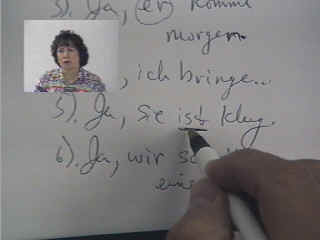 3). Ja, er komme
morgen.
, ich bringe...
5). Ja, Sie ist klug.
6). Ja, wir